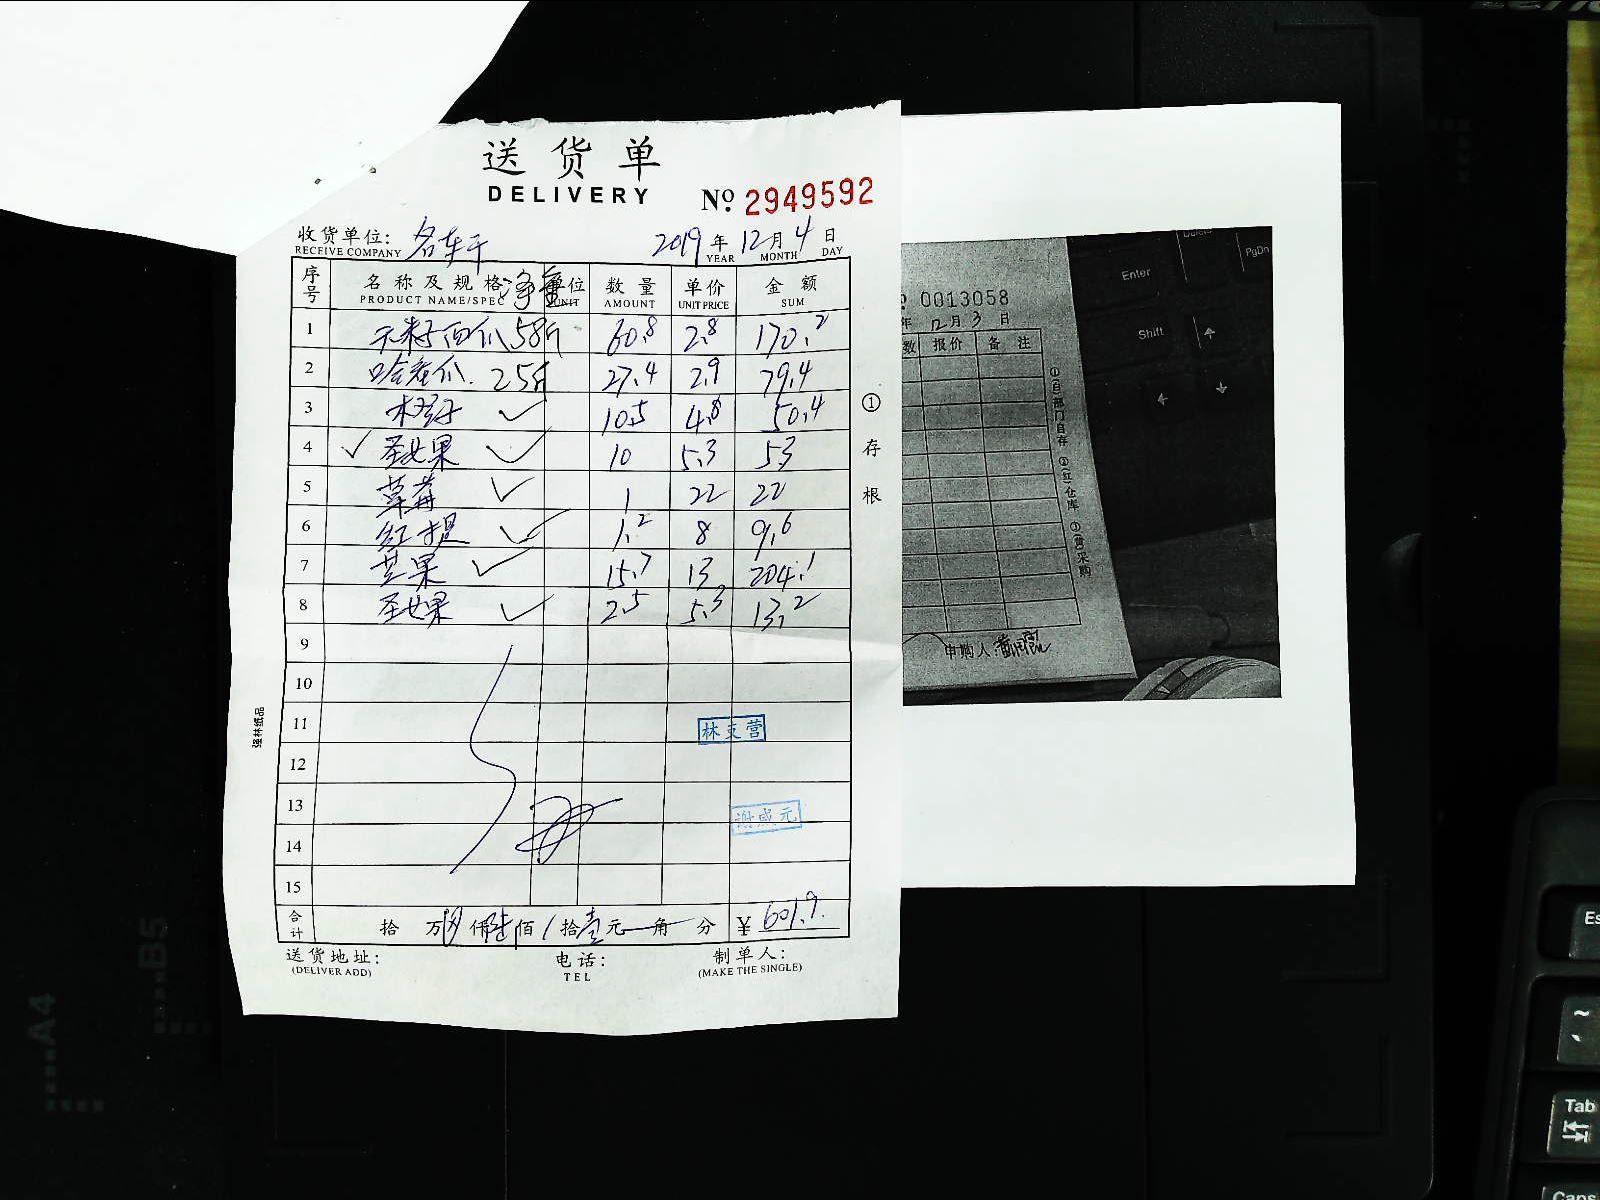 送货单
DELIVERY
№ 2949592
收货单位:
RECEIVE COMPANY
2019年12月4日
YEAR MONTH DAY
序号 名称及规格 净重 单位 数量 单价 金额
PRODUCT NAME/SPEC UNIT AMOUNT UNIT PRICE SUM
1 无籽西瓜 58斤 60.8 2.8 170.2
2 哈蜜瓜. 25斤 27.4 2.9 79.4
3 10.5 4.8 50.4
4 ✓ 圣女果 ✓ 10 5.3 53
5 草莓 ✓ 1 22 22
6 红提 ✓ 1.2 8 9.6
7 芒果 ✓ 15.7 13 204.1
8 圣女果 ✓ 2.5 5.3 13.2
9
10
11
12
13
14
15
林 营
谢 元
合计 拾 万 仟陆佰/拾壹元 角 分 ¥601.9.
送货地址:
(DELIVER ADD)
电话:
TEL
制单人:
(MAKE THE SINGLE)
①存根
强林纸品
0013058
年12月3日
数 报价 备注
①(白)部门自存 ②(红)仓库 ③(黄)采购
申购人:
Enter
PgDn
Shift
A4
B5
Tab
Caps